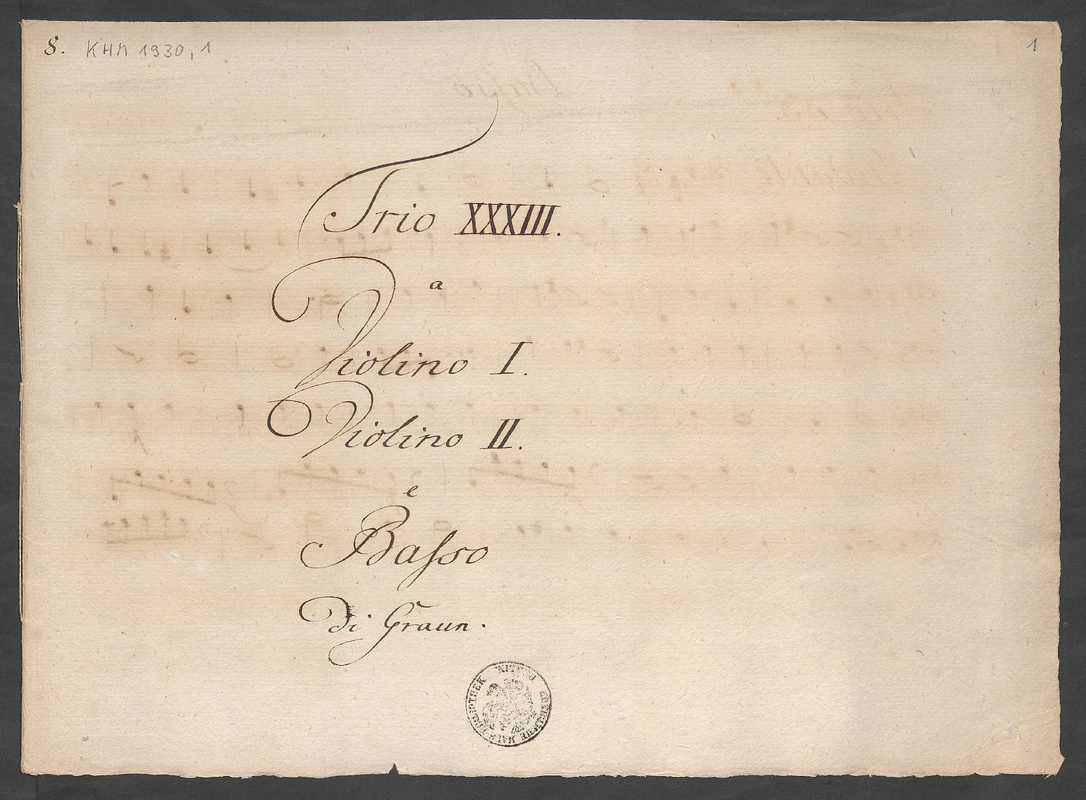 8. KHM 1930, 1
1
Trio XXXIII.
a
Violino I.
Violino II.
e
Basso
di Graun.